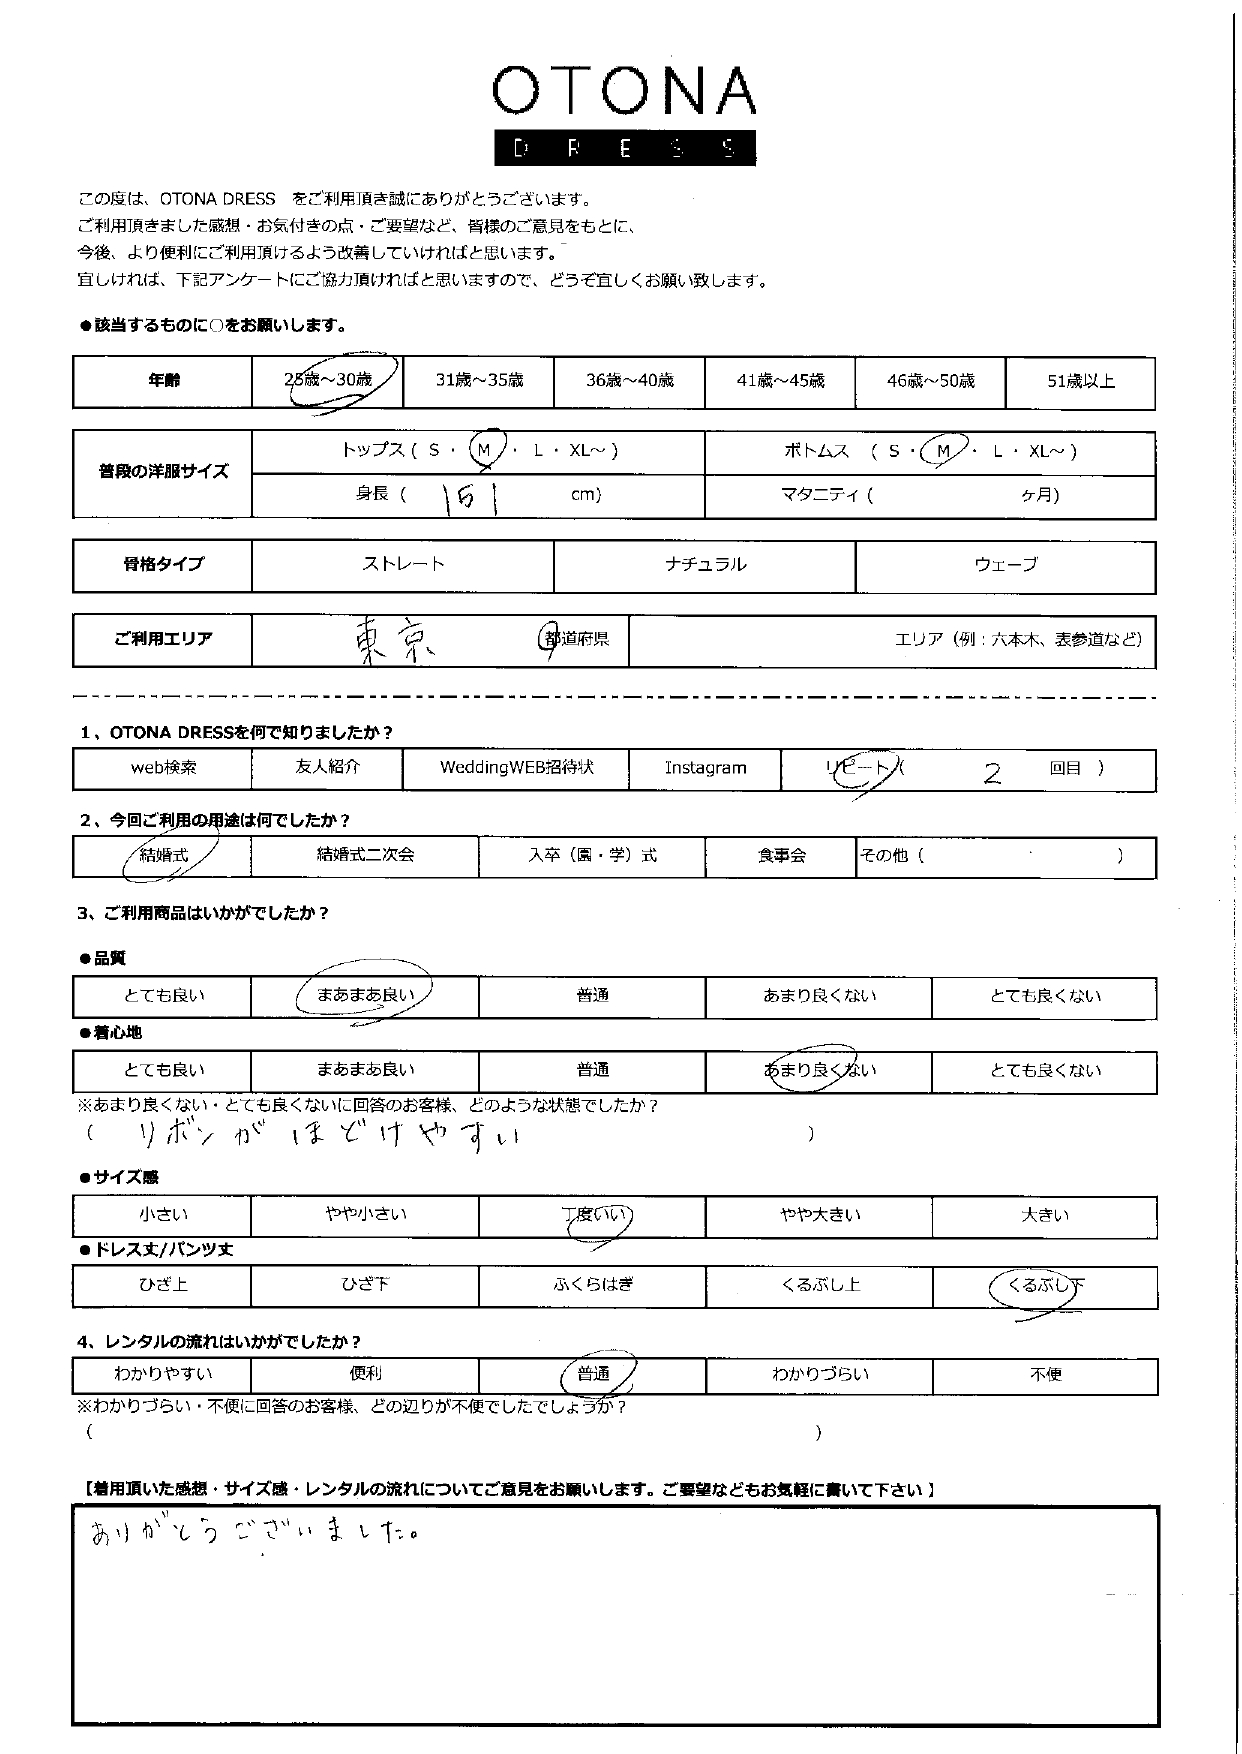 OTONA
DRESS
この度は、OTONA DRESS をご利用頂き誠にありがとうございます。
ご利用頂きました感想・お気付きの点・ご要望など、皆様のご意見をもとに、
今後、より便利にご利用頂けるよう改善していければと思います。
宜しければ、下記アンケートにご協力頂ければと思いますので、どうぞ宜しくお願い致します。
●該当するものに○をお願いします。
年齢 25歳～30歳 31歳～35歳 36歳～40歳 41歳～45歳 46歳～50歳 51歳以上
普段の洋服サイズ トップス ( S ・ M ・ L ・ XL～ ) ボトムス ( S ・ M ・ L ・ XL～ )
身長 ( 151 cm) マタニティ ( ヶ月)
骨格タイプ ストレート ナチュラル ウェーブ
ご利用エリア 東京 都道府県 エリア（例：六本木、表参道など）
1、OTONA DRESSを何で知りましたか？
web検索 友人紹介 WeddingWEB招待状 Instagram リピート ( 2 回目 )
2、今回ご利用の用途は何でしたか？
結婚式 結婚式二次会 入卒（園・学）式 食事会 その他 ( )
3、ご利用商品はいかがでしたか？
●品質
とても良い まあまあ良い 普通 あまり良くない とても良くない
●着心地
とても良い まあまあ良い 普通 あまり良くない とても良くない
※あまり良くない・とても良くないに回答のお客様、どのような状態でしたか？
( リボンがほどけやすい )
●サイズ感
小さい やや小さい 丁度いい やや大きい 大きい
●ドレス丈/パンツ丈
ひざ上 ひざ下 ふくらはぎ くるぶし上 くるぶし下
4、レンタルの流れはいかがでしたか？
わかりやすい 便利 普通 わかりづらい 不便
※わかりづらい・不便に回答のお客様、どの辺りが不便でしたでしょうか？
( )
【着用頂いた感想・サイズ感・レンタルの流れについてご意見をお願いします。ご要望などもお気軽に書いて下さい】
ありがとうございました。